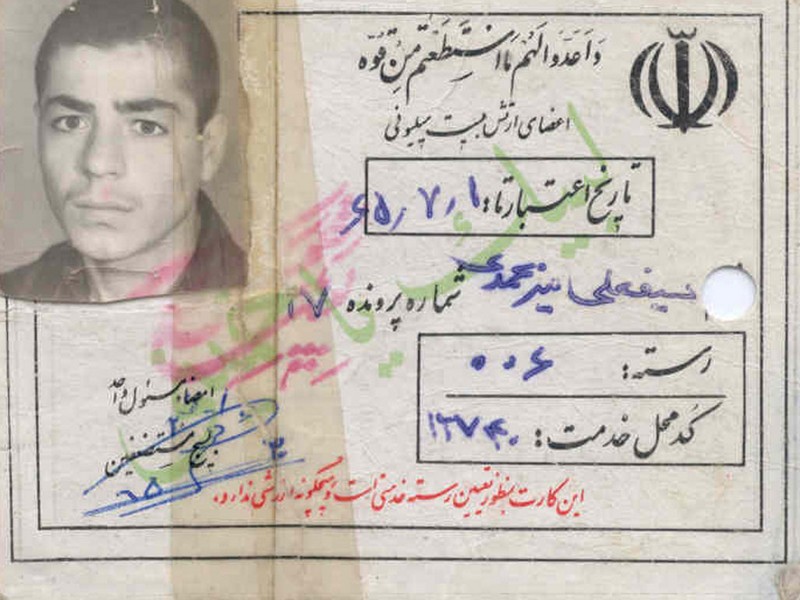 وَاَعِدّوا لَهُمْ مَا اسْتَطَعْتُمْ مِنْ قُوّه
اعضای ارتش بیست میلیونی
تاریخ اعتبار تا: ۶۵٫۷٫۱
سیفعلی
شماره پرونده ۱۷
رسته: ۰۰۶
کد محل خدمت: ۱۲۷۴۰
امضاء مسئول واحد
بسیج مستضعفین
این کارت بمنظور تعیین رسته خدمتی است و هیچگونه ارزشی ندارد،